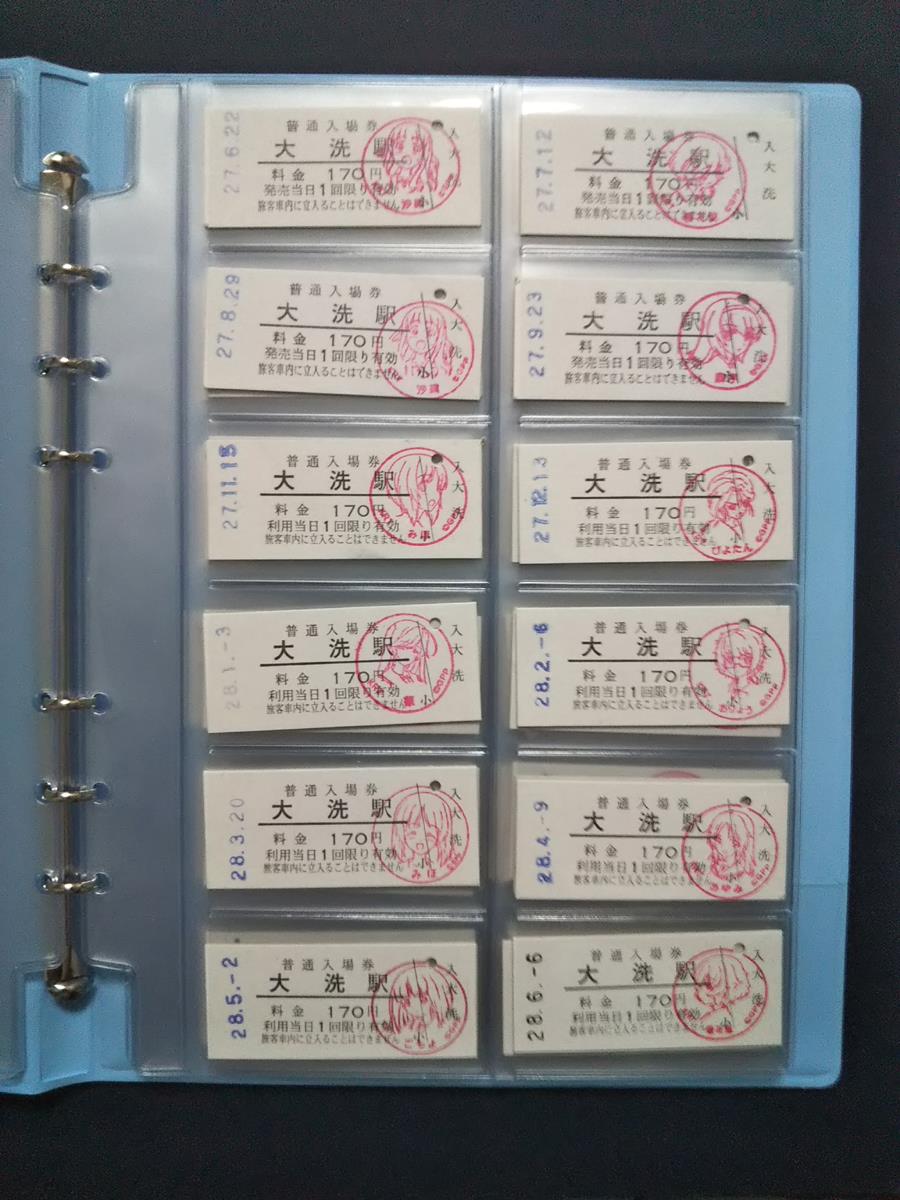 27.6.22
普通入場券
大洗駅
料金 170円
発売当日1回限り有効
旅客車内に立入ることはできません
入 大
小
沙織
©GPP
27.7.12
普通入場券
大洗駅
料金 170円
発売当日1回限り有効
旅客車内に立入ることはできません
入 大 洗
小
©GPP
27.8.29
普通入場券
大洗駅
料金 170円
発売当日1回限り有効
旅客車内に立入ることはできません
入 大 洗
小
沙織
©GPP
27.9.23
普通入場券
大洗駅
料金 170円
発売当日1回限り有効
旅客車内に立入ることはできません
入 大 洗
小
©GPP
27.11.15
普通入場券
大洗駅
料金 170円
利用当日1回限り有効
旅客車内に立入ることはできません
入 大 洗
小
©GPP
27.12.13
普通入場券
大洗駅
料金 170円
利用当日1回限り有効
旅客車内に立入ることはできません
入 大 洗
小
ぴよたん
©GPP
28.1.-3
普通入場券
大洗駅
料金 170円
利用当日1回限り有効
旅客車内に立入ることはできません
入 大 洗
小
華
©GPP
28.2.-6
普通入場券
大洗駅
料金 170円
利用当日1回限り有効
旅客車内に立入ることはできません
入 大 洗
小
おりょう
©GPP
28.3.20
普通入場券
大洗駅
料金 170円
利用当日1回限り有効
旅客車内に立入ることはできません
入 大 洗
小
みほ
28.4.-9
普通入場券
大洗駅
料金 170円
利用当日1回限り有効
旅客車内に立入ることはできません
入 大 洗
小
©GPP
28.5.-2
普通入場券
大洗駅
料金 170円
利用当日1回限り有効
旅客車内に立入ることはできません
入 大 洗
小
©GPP
28.6.-6
普通入場券
大洗駅
料金 170円
利用当日1回限り有効
旅客車内に立入ることはできません
入 大 洗
小
©GPP